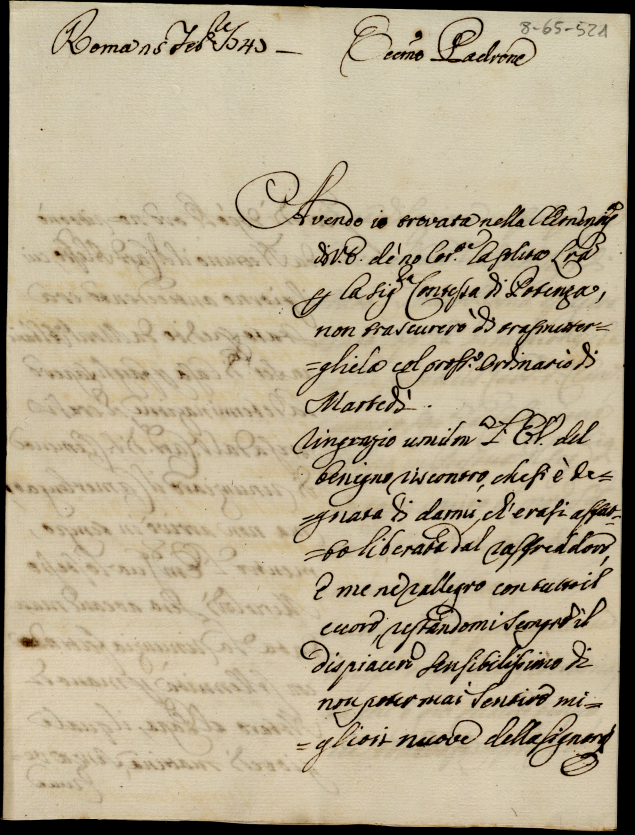 8-65-521
Roma 15 Feb.º 1743 Eccmo Padrone
Avendo io trovata nella Clemenza
di V.E. de' 10 Cor.te la solita Lra
p la Sig.ra Contessa di Potenza,
non trascurerò di trasmetter=
=gliela col pross.º ordinario di
Martedì.
Ringrazio umilm.e l'E.V. del
benigno riscontro, che si è de=
=gnata di darmi, ch'erasi affat=
=to liberata dal raffreddore
e me ne rallegro con tutto il
cuore, restandomi sempre il
dispiacere sensibilissimo di
non poter mai sentire mi=
=gliori nuove della Signora